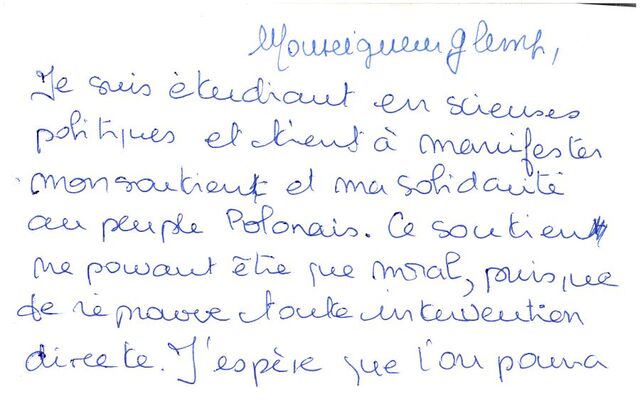 Monseigneur Glemp,
Je suis étudiant en sciences
politiques et tient à manifester
mon soutient et ma solidarité
au peuple Polonais. Ce soutient
ne pouvant être que moral, puisque
je réprouve toute intervention
directe. J'espère que l'on pourra